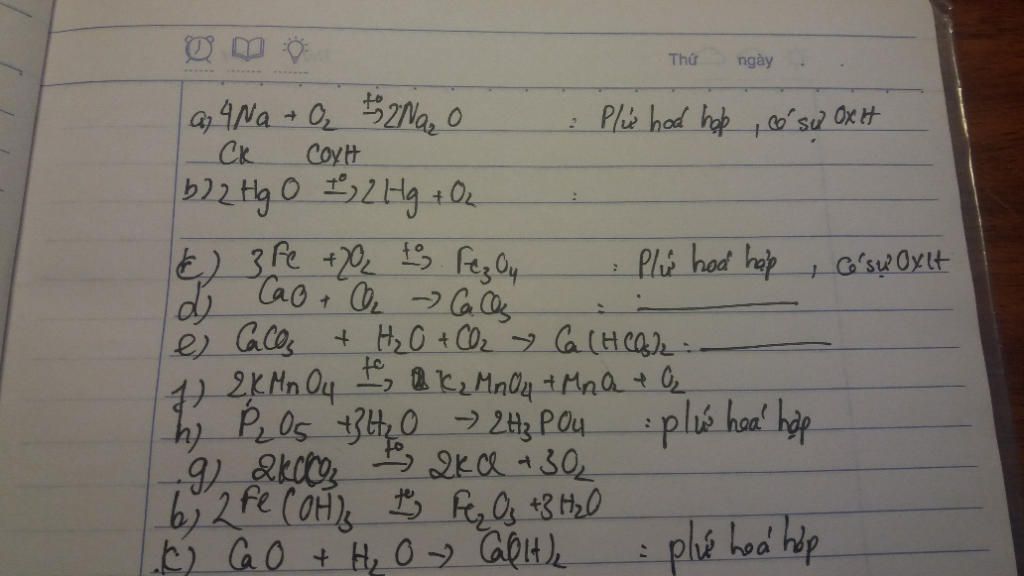 Thứ ngày
a) 4Na + O2 t°→ 2Na2O : P/ứ hoá hợp , có sự OXH
CK COXH
b) 2HgO t°→ 2Hg + O2 :
c) 3Fe + 2O2 t°→ Fe3O4 : P/ứ hoá hợp , có sự OXH
d) CaO + CO2 → CaCO3 :
e) CaCO3 + H2O + CO2 → Ca(HCO3)2 :
f) 2KMnO4 t°→ K2MnO4 + MnO2 + O2
h) P2O5 + 3H2O → 2H3PO4 : p/ứ hoá hợp
g) 2KClO3 t°→ 2KCl + 3O2
b) 2Fe(OH)3 t°→ Fe2O3 + 3H2O
k) CaO + H2O → Ca(OH)2 : p/ứ hoá hợp